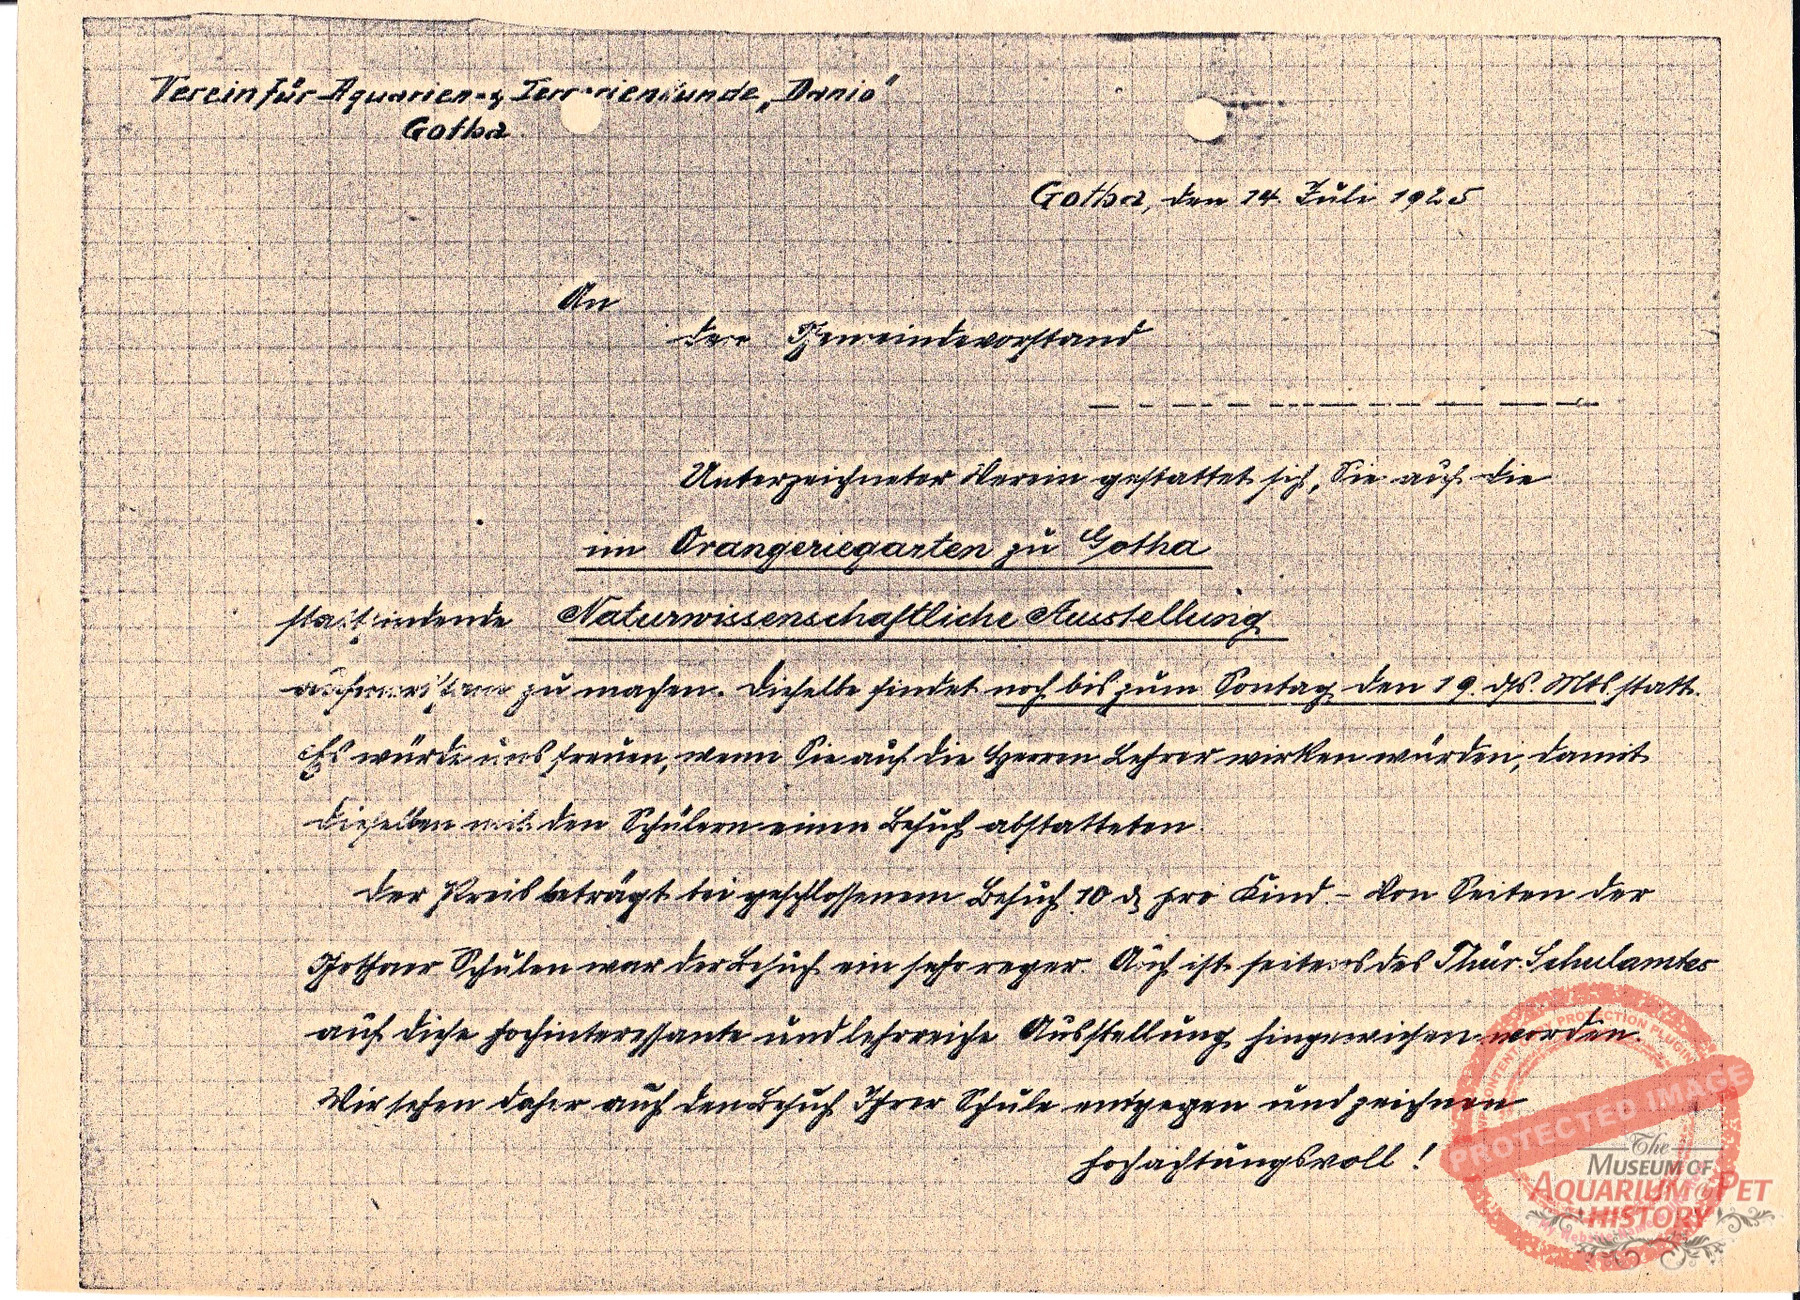 Verein für Aquarien- & Terrarienkunde „Danio"
Gotha.
Gotha, den 14. Juli 1925
An
den Gemeindevorstand
Unterzeichneter Verein gestattet sich, Sie auf die
im Orangeriegarten zu Gotha
stattfindende Naturwissenschaftliche Ausstellung
aufmerksam zu machen. Dieselbe findet noch bis zum Sontag, den 19. ds. Mts. statt.
Es würde uns freuen, wenn Sie auf die Herren Lehrer wirken würden, damit
dieselben mit den Schülern einen Besuch abstatteten.
Der Preis beträgt bei geschlossenem Besuch 10 ₰ pro Kind. – Von Seiten der
Gothaer Schulen war der Besuch ein sehr reger. Auch ist seitens des Thür. Schulamtes
auf diese hochinteressante und lehrreiche Ausstellung hingewiesen worden.
Wir sehen daher auch den Besuch Ihrer Schule entgegen und zeichnen
Hochachtungsvoll!
PROTECTION PLUGIN
PROTECTED IMAGE
The
MUSEUM OF
AQUARIUM & PET
HISTORY